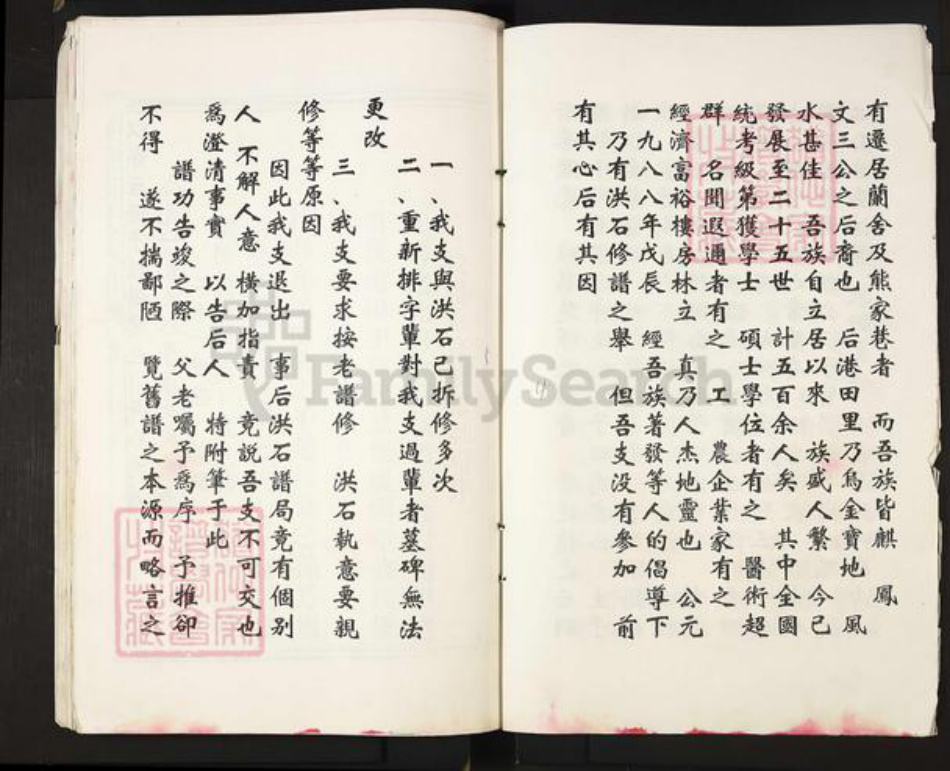 有遷居蘭舍及熊家巷者　而吾族皆麒　鳳
文三公之后裔也　后港田里乃烏金寶地　風
水甚佳　吾族自立居以來　族盛人繁　今已
發展至二十五世　計五百余人矣　其中全國
統考級第獲學士　碩士學位者有之　醫術超
群　名聞遐邇者有之　工　農企業家有之
經濟富裕樓房林立　真乃人杰地靈也　公元
一九八八年戊辰　經吾族著發等人的倡導下
乃有洪石修譜之舉　但吾支没有參加　前
有其心后有其因
一、我支與洪石已拆修多次
二、重新排字輩對我支過輩者墓碑無法
更改
三、我支要求按老譜修　洪石執意要親
修等等原因
因此我支退出　事后洪石譜局竟有個别
人　不解人意　橫加指責　竟説吾支不可交也
爲澄清事實　以告后人　特附筆于此
譜功告竣之際　父老囑予爲序　予推卻
不得　遂不揣鄙陋　覽舊譜之本源而略言之
FamilySearch